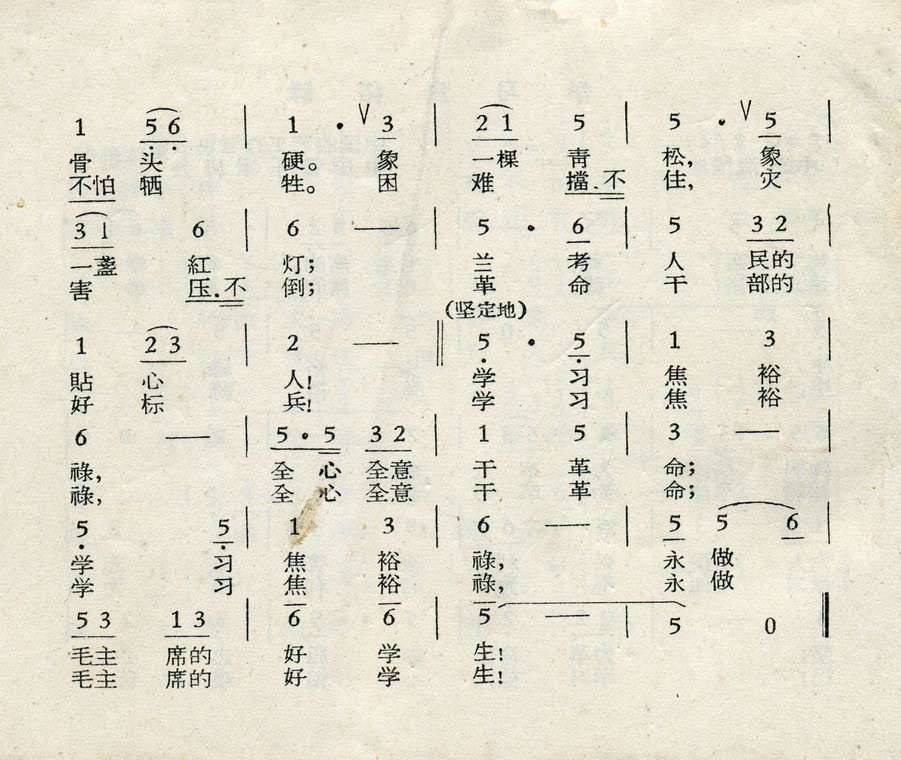 1 5 6 | 1 · V 3 | 2 1 5 | 5 · V 5 |
骨 头 硬。 象 一棵 青 松, 象
不怕 牺 牲。 困 难 擋.不 住, 灾
3 1 6 | 6 — | 5 · 6 | 5 3 2 |
一盏 紅 灯; 兰 考 人 民的
害 压.不 倒; 革 命 干 部的
(坚定地)
1 2 3 | 2 — ‖ 5 · 5 | 1 3 |
貼 心 人! 学 习 焦 裕
好 标 兵! 学 习 焦 裕
6 — | 5 · 5 3 2 | 1 5 | 3 — |
祿, 全 心 全意 干 革 命;
祿, 全 心 全意 干 革 命;
5 · 5 | 1 3 | 6 — | 5 5 6 |
学 习 焦 裕 祿, 永 做
学 习 焦 裕 祿, 永 做
5 3 1 3 | 6 6 | 5 — | 5 0
毛主 席的 好 学 生!
毛主 席的 好 学 生!